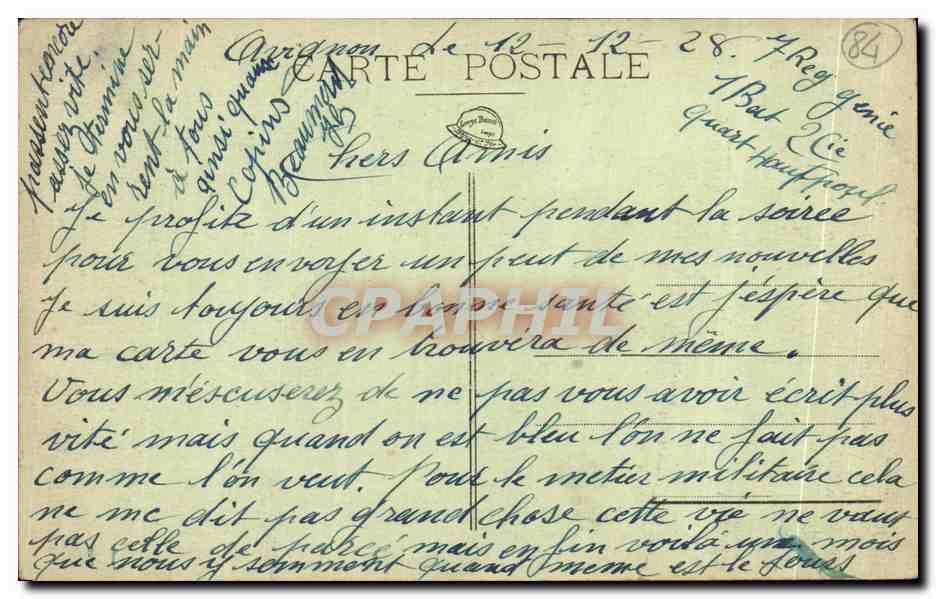 Avignon le 12-12-28.
7 Reg genie
1 Bat 2 Cie
quart Hautpoul
84
CARTE POSTALE
chers Amis
Je profite d'un instant pendant la soirée
pour vous envoyer un peut de mes nouvelles
Je suis toujours en bonne santé est j'éspère que
ma carte vous en trouvéra de même.
Vous m'éscuserez de ne pas vous avoir écrit plus
vité mais quand on est bleu l'on ne fait pas
comme l'on veut. Pour le metier militaire cela
ne me dit pas grand chose cette vie ne vaut
pas celle de parcé mais enfin voilà un mois
que nous y somment quand meme est le jours
passent encore
asser vite
Je termine
en vous ser-
rent la main
à tous
ainsi quaux
Copins
Beaumont
CPAPHIL